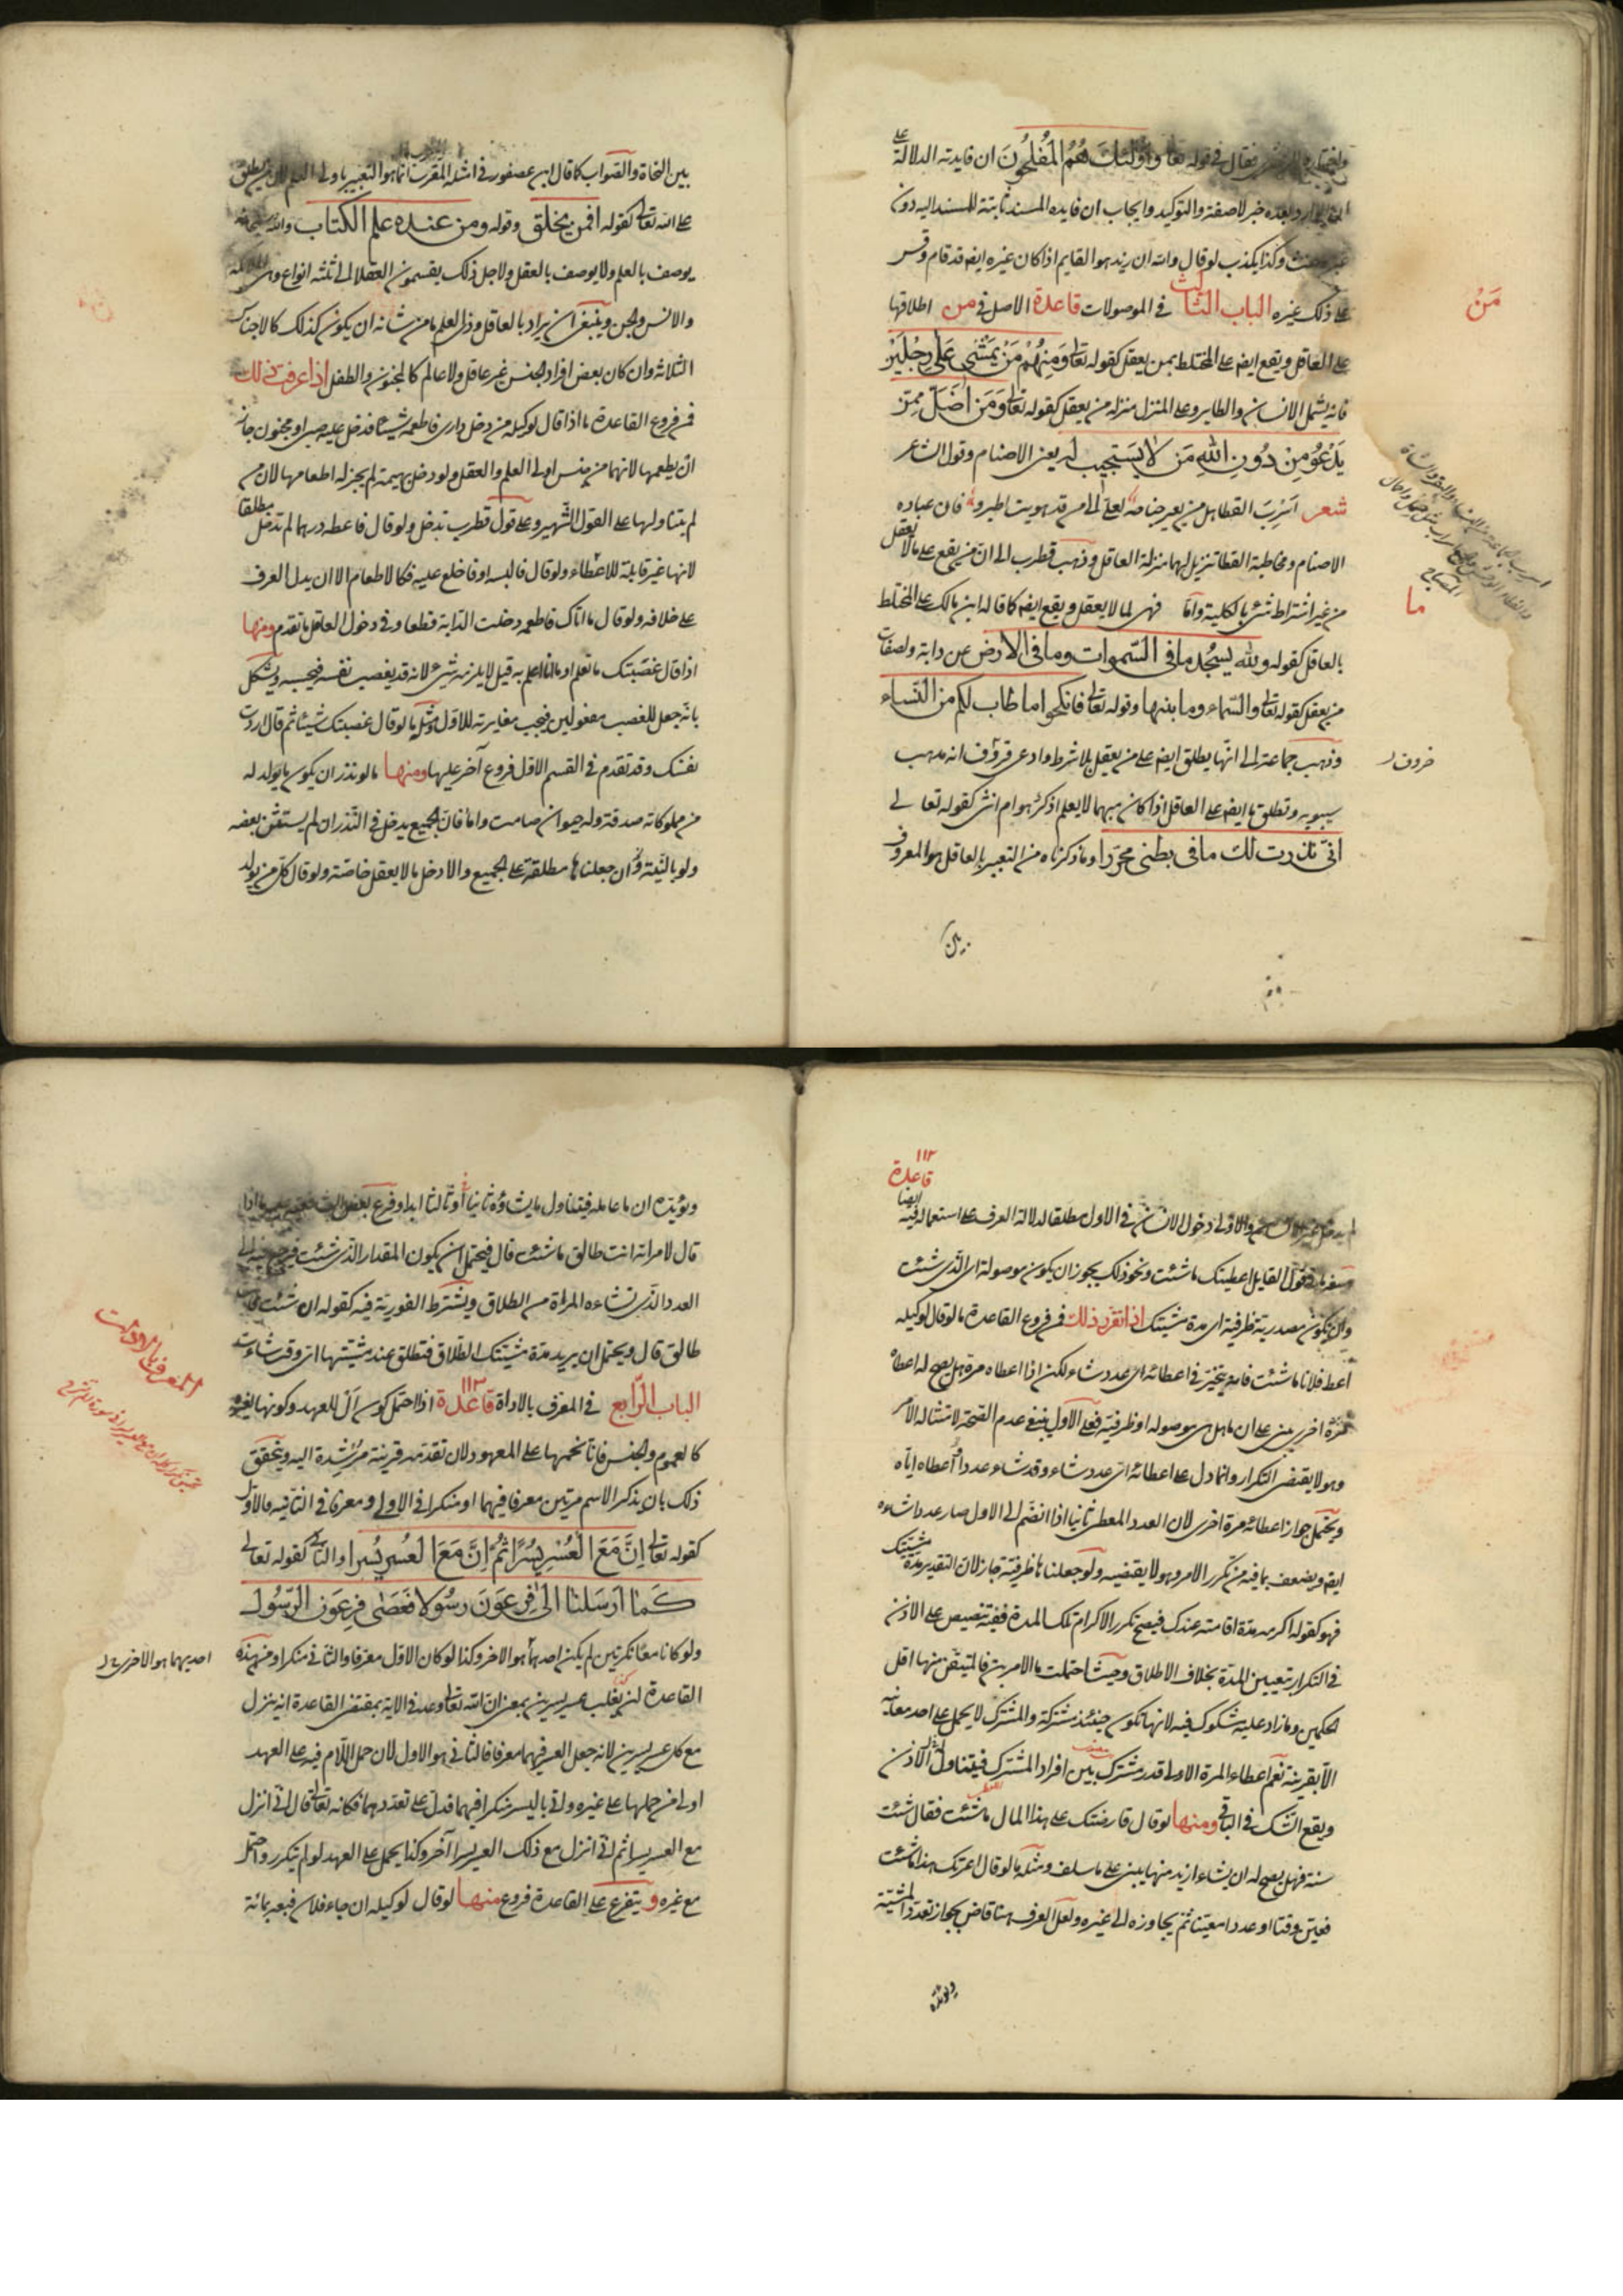 فقال في قوله تعا واولئك هم المفلحون ان فايدته الدلالة على
بعده خبر لا صفة والتوكيد وايجاب ان فايدة المسند ثابتة للمسند اليه دون
غيره وكذا يكذب لو قال والله ان زيد هو القايم اذا كان غيره ايضا قد قام وقس
على ذلك غيره الباب الثالث في الموصولات قاعدة الاصل في من اطلاقها
على العاقل ويقع ايضا على المختلط بمن يعقل كقوله تعالى ومنهم من يمشي على رجلين
فانه يشمل الانسان والطاير وعلى المنزل منزلة من يعقل كقوله تعالى ومن اضل ممن
يدعو من دون الله من لا يستجيب له يعني الاصنام وقول الشاعر
شعر اسرب القطا هل من يعير جناحه لعلي الى من قد هويت اطير فان عباده
الاصنام ومخاطبة القطا تنزيل لهما منزلة العاقل وذهب قطرب الى ان من يقع على ما لا يعقل
من غير اشتراط شيء بالكلية واما فهي لما لا يعقل ويقع ايضا كما قاله ابن مالك على المختلط
بالعاقل كقوله ولله يسجد ما في السموات وما في الارض من دابة ولصفات
من يعقل كقوله تعالى والسماء وما بنيها وقوله تعالى فانكحوا ما طاب لكم من النساء
وذهب جماعة الى انها يطلق ايضا على من يعقل بلا شرط وادعى خروف انه مذهب
سيبويه وتطلق ما ايضا على العاقل اذا كان مبهما لا يعلم اذكر هو ام انثى كقوله تعالى
اني نذرت لك ما في بطني محررا وما ذكرناه من التعبير بالعاقل هو المعروف
بين
مَنْ
ما
خروف
بين النحاة والصواب كما قال ابن عصفور في امثلة المقرب انما هو التعبير باولي العلم لان من يطلق
على الله تعالى كقوله افمن يخلق وقوله ومن عنده علم الكتاب والله سبحانه
يوصف بالعلم ولا يوصف بالعقل ولاجل ذلك يقسمون العقلا الى ثلثة انواع وهي الملائكة
والانس والجن وينبغي ان يراد بالعاقل وذي العلم ما من شانه ان يكون كذلك كالاجناس
الثلاثة وان كان بعض افراد الجنس غير عاقل ولا عالم كالمجنون والطفل اذا عرفت ذلك
فمن فروع القاعدة ما اذا قال لوكيله من دخل داري فاطعمه شيئا فدخل عليه صبي او مجنون جاز
ان يطعمها لانهما من جنس اولي العلم والعقل ولو دخل بهيمة لم يجز له اطعامها لان من
لم يتناولها على القول الشهير وعلى قول قطرب تدخل ولو قال فاعطه درهما لم تدخل مطلقا
لانها غير قابلة للاعطاء ولو قال فالبسه او فاخلع عليه فكالاطعام الا ان يدل العرف
على خلافه ولو قال ما اتاك فاطعمه دخلت الدابة قطعا وفي دخول العاقل ما تقدم ومنها
اذا قال غصبتك ما تعلم او ما انا اعلم به قيل لا يلزمه شيء لانه قد يغصب نفسه فيحبسه ويشكل
بانه جعل للغصب مفعولين فيجب مغايرته للاول ومثل ما لو قال غصبتك شيئا ثم قال اردت
نفسك وقد تقدم في القسم الاول فروع آخر عليها ومنها ما لو نذر ان يكون ما يولد له
من مملوكاته صدقة وله حيوان صامت واما فان الجميع يدخل في النذر ان لم يستثن بعضه
ولو بالنية وان جعلناها مطلقة على الجميع والا دخل ما لا يعقل خاصة ولو قال كل من يولد
١١٢
قاعدة
لم يدخل غير والاولى دخول الانسان في الاول مطلقا لدلالة العرف على استعماله فيه ايضا
قول القايل اعطيتك ما شئت ونحو ذلك يجوز ان يكون موصولة اي الذي شئت
وان تكون مصدرية ظرفية اي مدة مشيتك اذا تقرر ذلك فمن فروع القاعدة ما لو قال لوكيله
اعط فلانا ما شئت فانه يتخير في اعطائه اي عدد شاء لكن اذا اعطاه مرة هل يصح له اعطاه
مرة اخرى مبني على ان ما هل هي موصولة او ظرفية فعلى الاول ينبغي عدم الصحة لامتثاله الامر
وهو لا يقتضي التكرار وانما دل على اعطائه اي عدد شاء وقد شاء عددا اعطاه اياه
ويحتمل جواز اعطائه مرة اخرى لان العدد المعطى ثانيا اذا انضم الى الاول صار عددا شاءه
ايضا ويضعف بما فيه من تكرر الامر وهو لا يقتضيه ولو جعلناها ظرفية جاز لان التقدير مدة مشيتك
فهو كقوله اكرمه مدة اقامته عندك فيصح تكرر الاكرام تلك المدة ففيه تنصيص على الاذن
في التكرار بتعيين المدة بخلاف الاطلاق وحيث احتملت ما الامرين فالمتيقن منها اقل
الحكمين وما زاد عليه مشكوك فيه لانها تكون حينئذ مشتركة والمشترك لا يحمل على احد معانيه
الا بقرينة نعم اعطاء المرة الاولى قدر مشترك بين افراد المشترك فيتناوله الاذن
ويقع الشك في الباقي ومنها لو قال قارضتك على هذا المال ما شئت فقال شئت
سنة فهل يصح له ان يشاء ازيد منها يبنى على ما سلف ومثله ما لو قال اعرتك هذا ما شئت
فعين وقتا او عددا معينا ثم يجاوزه الى غيره ولعل العرف هنا قاض بجواز تعدد المشية
ويؤيده
ويؤيده ان ما عامة فيتناول ما يشاؤه ثانيا او ثالثا ابدا وفرع بعض الشافعية عليه ما اذا
قال لامراته انت طالق ما شئت قال فيحتمل ان يكون المقدار الذي شئت فيرجع الى
العدد الذي تشاءه المراة من الطلاق ويشترط الفورية فيه كقوله ان شئت فانت
طالق قال ويحتمل ان يريد مدة مشيتك الطلاق فتطلق عند مشيتها اي وقت شاءت
الباب الرابع في المعرف بالاداة قاعدة ١١٣ اذا احتمل كون ال للعهد وكونها لغيره
كالعموم والجنس فانا نحملها على المعهود لان تقدمه قرينة مرشدة اليه ويتحقق
ذلك بان يذكر الاسم مرتين معرفا فيهما او منكرا في الاولى ومعرفا في الثانية فالاول
كقوله تعالى ان مع العسر يسرا ثم ان مع العسر يسرا والثاني كقوله تعالى
كما ارسلنا الى فرعون رسولا فعصى فرعون الرسول
ولو كانا معا نكرتين لم يكن احدهما هو الاخر وكذا لو كان الاول معرفا والثاني منكرا ومن هذه
القاعدة لن يغلب عسر يسرين بمعنى ان الله تعالى وعد في الاية بمقتضى القاعدة انه ينزل
مع كل عسر يسرين لانه جعل العسر فيهما معرفا فالثاني هو الاول لان حمل اللام فيه على العهد
اولى من حملها على غيره واتى باليسر منكرا فيهما فدل على تعددهما فكانه تعالى قال اني انزل
مع العسر يسرا ثم اني انزل مع ذلك العسر يسرا آخر وكذا يحمل على العهد لو لم يتكرر واحتمل
مع غيره ويتفرع على القاعدة فروع منها لو قال لوكيله ان جاء فلان فبعه بمائة
المعرف بالادات
احديهما هو الاخرى